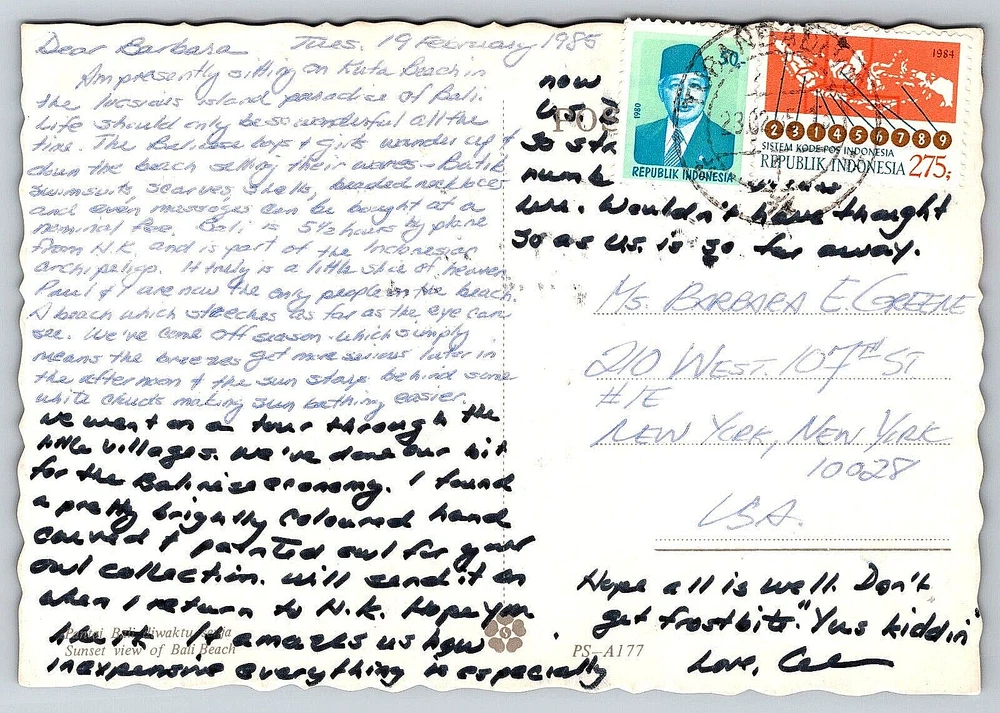 Dear Barbara Tues. 19 February 1985
Am presently sitting on Kuta Beach in
the luscious island paradise of Bali.
Life should only be so wonderful all the
time. The Balinese boys & girls wander up &
down the beach selling their wares - Batik
swimsuits, scarves, shells, beaded necklaces
and even massages can be bought at a
nominal fee. Bali is 5½ hours by plane
from H.K. and is part of the Indonesian
archipeligo. It truly is a little slice of heaven
Paul & I are now the only people on the beach.
A beach which stretches as far as the eye can
see. We've come off season which simply
means the breezes get more serious later in
the afternoon & the sun stays behind some
white clouds making sun bathing easier.
We went on a tour through the
little villages. We've done our bit
for the Balinise economy. I found
a pretty brightly coloured hand
carved & painted owl for your
owl collection. Will send it on
when I return to H.K. Hope you
like it. It amazes us how
inexpensive everything is especially
now
U.S.
so str
numb
we. Wouldn't have thought
so as U.S. is so far away.
Pantai Bali diwaktu senja
Sunset view of Bali Beach
PS-A177
PO
50
1980
REPUBLIK INDONESIA
1984
2 3 1 4 5 6 7 8 9
SISTEM KODE POS INDONESIA
REPUBLIK INDONESIA 275,-
Ms. BARBARA E. GREENE
210 WEST. 107TH ST
#1E
NEW YORK, NEW YORK
10028
USA.
Hope all is well. Don't
get frostbite. "Yus kiddin'
Love,